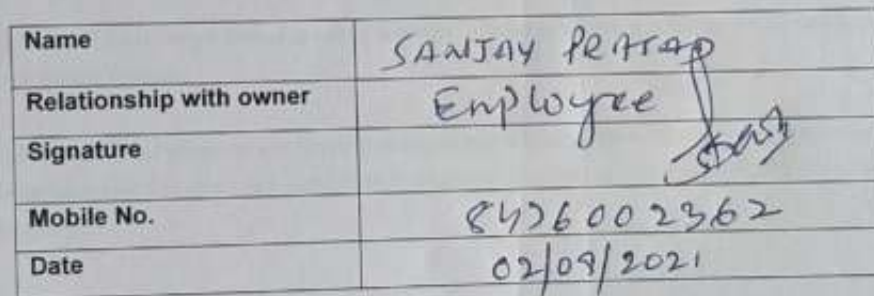 Name SANJAY PRATAP
Relationship with owner Employee
Signature
Mobile No. 8426002362
Date 02/08/2021